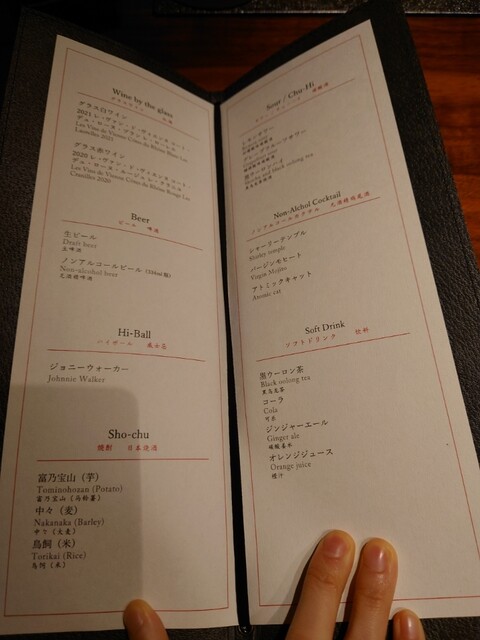 Wine by the glass
グラスワイン
グラス白ワイン
Les Vins de Vienne Cotes du Rhone Blanc Les
Laurelles 2021
グラス赤ワイン
Les Vins de Vienne Cotes du Rhone Rouge Les
Cranilles 2020
Beer
ビール 啤酒
生ビール
Draft beer
生啤酒
ノンアルコールビール (334ml瓶)
Non-alcohol beer
无酒精啤酒
Hi-Ball
ハイボール 威士忌
ジョニーウォーカー
Johnnie Walker
Sho-chu
焼酎 日本烧酒
富乃宝山 (芋)
Tominohozan (Potato)
富乃宝山 (马铃薯)
中々 (麦)
Nakanaka (Barley)
中々 (大麦)
鳥飼 (米)
Torikai (Rice)
鸟饲 (米)
Sour / Chu-Hi
レモンサワー
グレープフルーツサワー
black oolong tea
Non-Alchol Cocktail
ノンアルコールカクテル 无酒精鸡尾酒
シャーリーテンプル
Shirley temple
バージンモヒート
Virgin Mojito
アトミックキャット
Atomic cat
Soft Drink
ソフトドリンク 饮料
黒ウーロン茶
Black oolong tea
黑乌龙茶
コーラ
Cola
可乐
ジンジャーエール
Ginger ale
オレンジジュース
Orange juice
橙汁